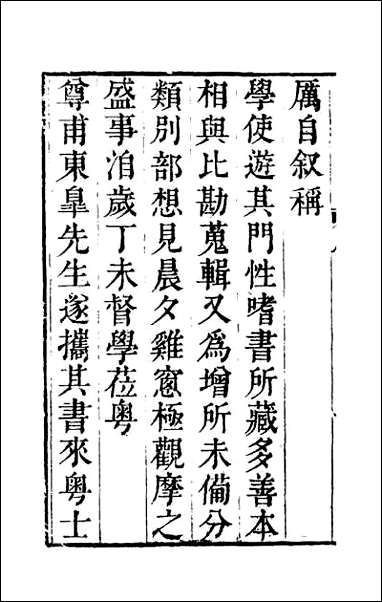 厲自叙稱
學使遊其門性嗜書所藏多善本
相與比勘蒐輯又為增所未備分
類別部想見晨夕雞窓極觀摩之
盛事洎歲丁未督學莅粤
尊甫東臯先生遂攜其書來粤士